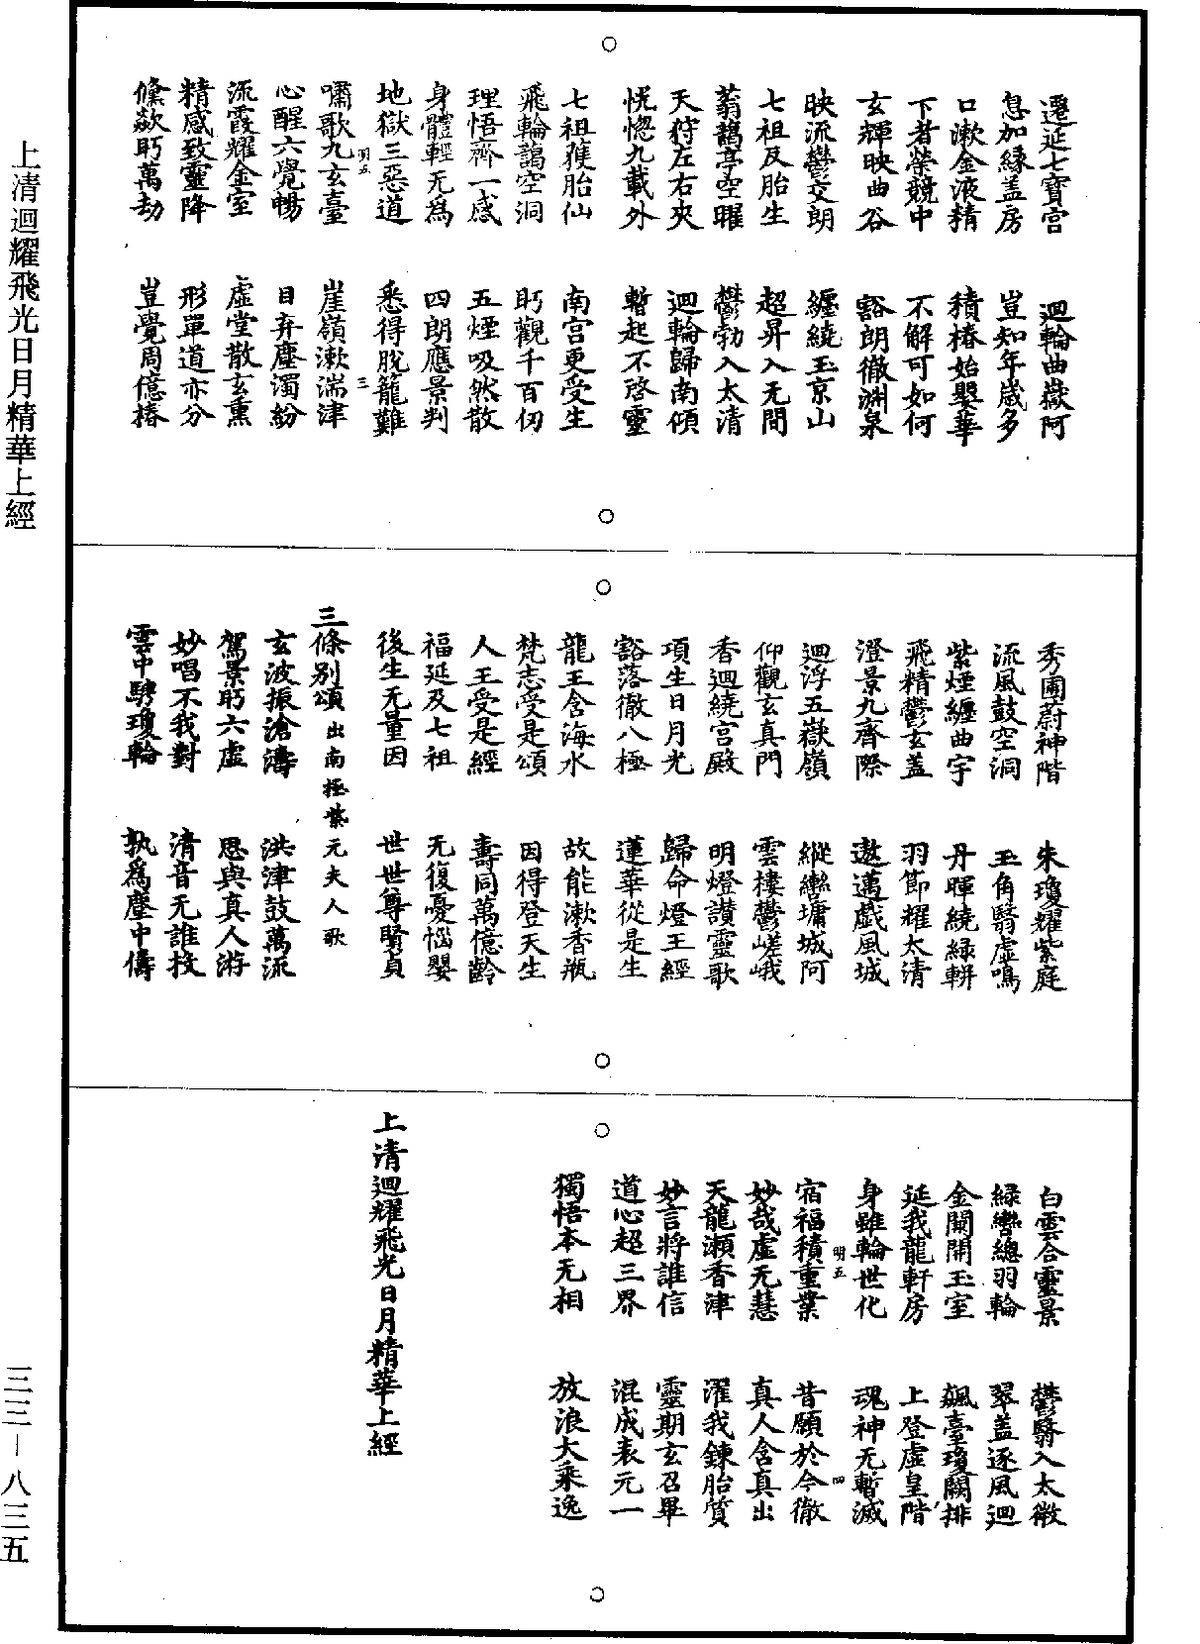 遷延七寶宮　迴輪曲嶽阿
息加緑蓋房　豈知年歲多
口漱金液精　積椿始翠華
下者榮競中　不解可如何
玄輝映曲谷　豁朗徹淵泉
映流鬱交朗　纏繞玉京山
七祖及胎生　超昇入无間
蓊藹亭空曜　鬱勃入太清
天狩左右夾　迴輪歸南傾
恍惚九載外　暫起不啓靈
七祖獲胎仙　南宮更受生
飛輪藹空洞　眄觀千百仞
理悟齊一感　五煙吸然散
身體輕无爲　四朗應景判
地獄三惡道　悉得脫籠難
明五　三
嘯歌九玄臺　崖嶺漱湍津
心醒六覺暢　目弃塵濁紛
流霞耀金室　虛堂散玄熏
精感致靈降　形單道亦分
儵欻眄萬劫　豈覺周億椿
秀圃蔚神階　朱瓊耀紫庭
流風鼓空洞　玉角翳虛鳴
紫煙纏曲宇　丹暉繞緑軿
飛精鬱玄蓋　羽節耀太清
澄景九齊際　遨邁戲風城
迴浮五嶽嶺　縱轡墉城阿
仰觀玄真門　雲樓鬱嵯峨
香迴繞宮殿　明燈讃靈歌
項生日月光　歸命燈王經
豁落徹八極　蓮華從是生
龍王含海水　故能漱香瓶
梵志受是頌　因得登天生
人王受是經　壽同萬億齡
福延及七祖　无復憂惱嬰
後生无量因　世世尊賢貞
三條别頌　出南極紫元夫人歌
玄波振滄濤　洪津鼓萬流
駕景眄六虛　思與真人游
妙唱不我對　清音无誰投
雲中騁瓊輪　孰爲塵中儔
白雲合靈景　鬱翳入太微
緑轡總羽輪　翠盖逐風迴
金闕開玉室　飆臺瓊闕排
延我龍軒房　上登虛皇階
身雖輪世化　魂神无暫滅
明五　四
宿福積重業　昔願於今徹
妙哉虛无慧　真人含真出
天龍瀬香津　濯我鍊胎質
妙言將誰信　靈期玄召畢
道心超三界　混成表元一
獨悟本无相　放浪大乘逸
上清迴耀飛光日月精華上經
上清迴耀飛光日月精華上經
三三－八三五